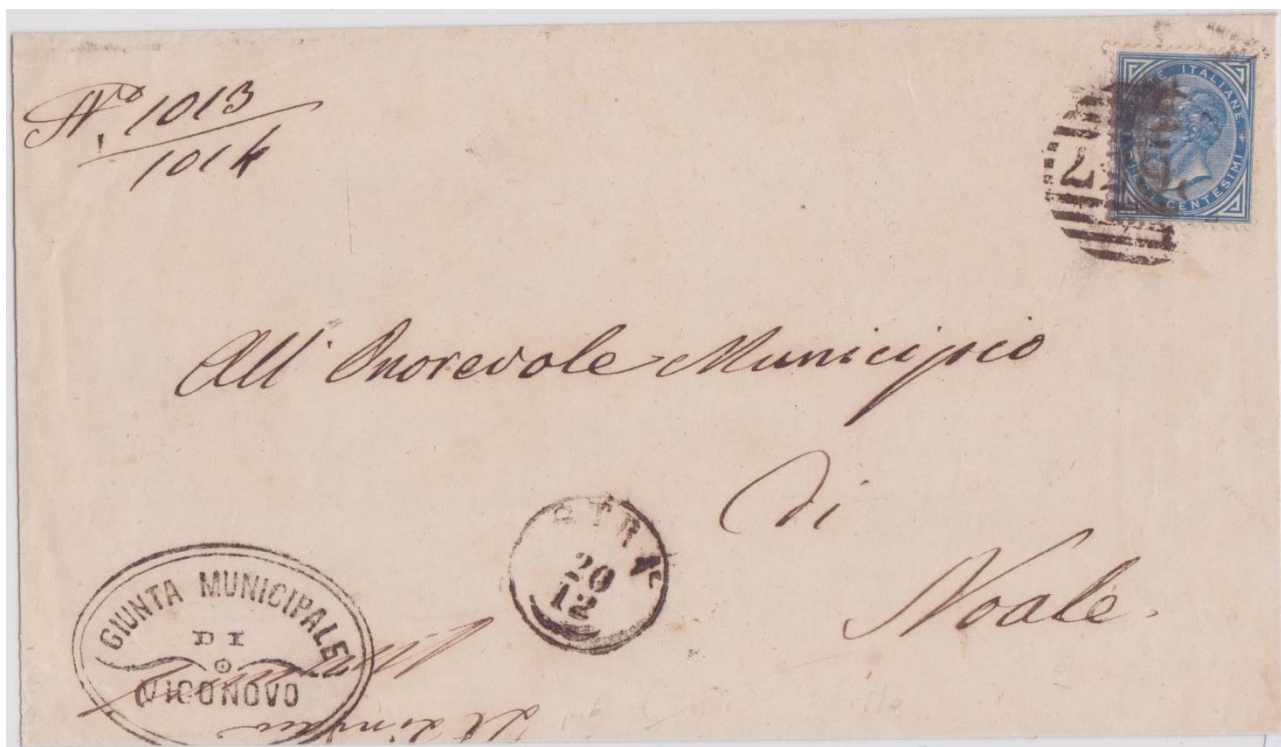 No. 1013
1014
POSTE ITALIANE
CENTESIMI
All' Onorevole Municipio
di
Noale.
STRA
20
12
GIUNTA MUNICIPALE
DI
VIGONOVO
Il Sindaco